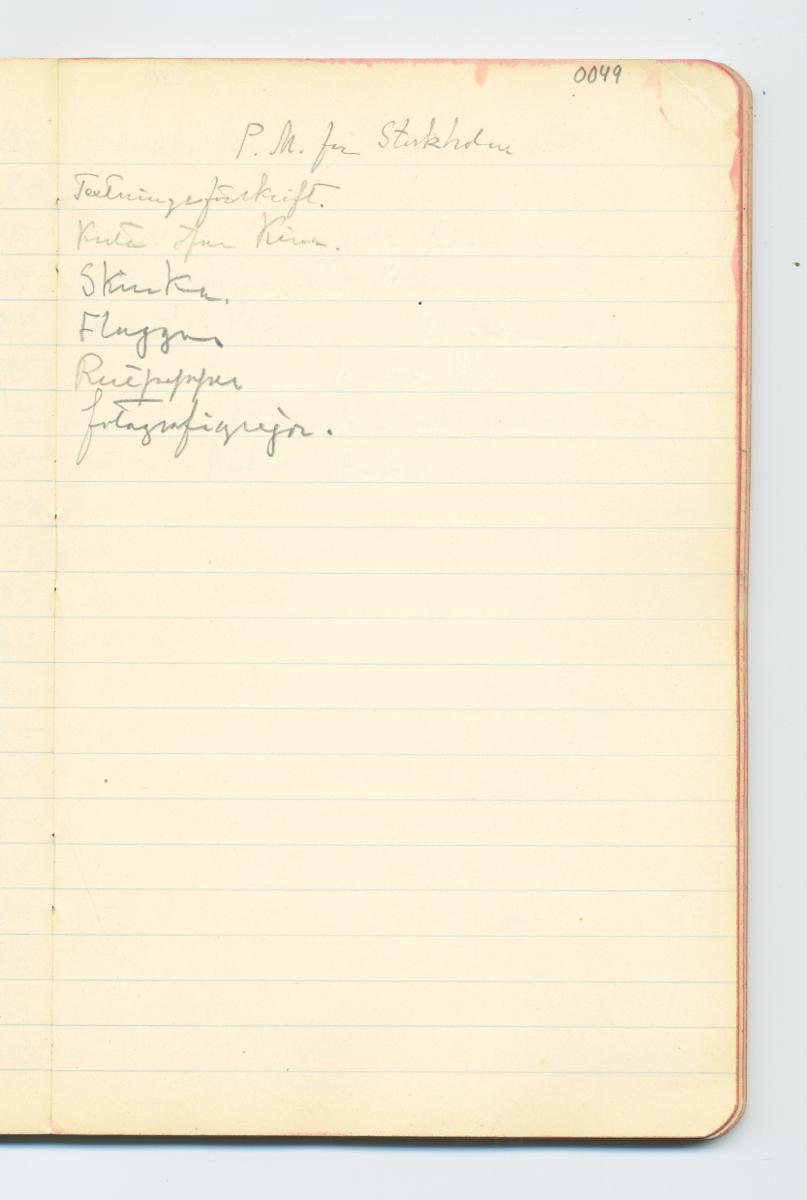 0049
P. M. för Stockholm
Textningsförskrift.
Karta öfver Kina.
Skinka.
Flaggor
Rutpapper
fotografigrejor.